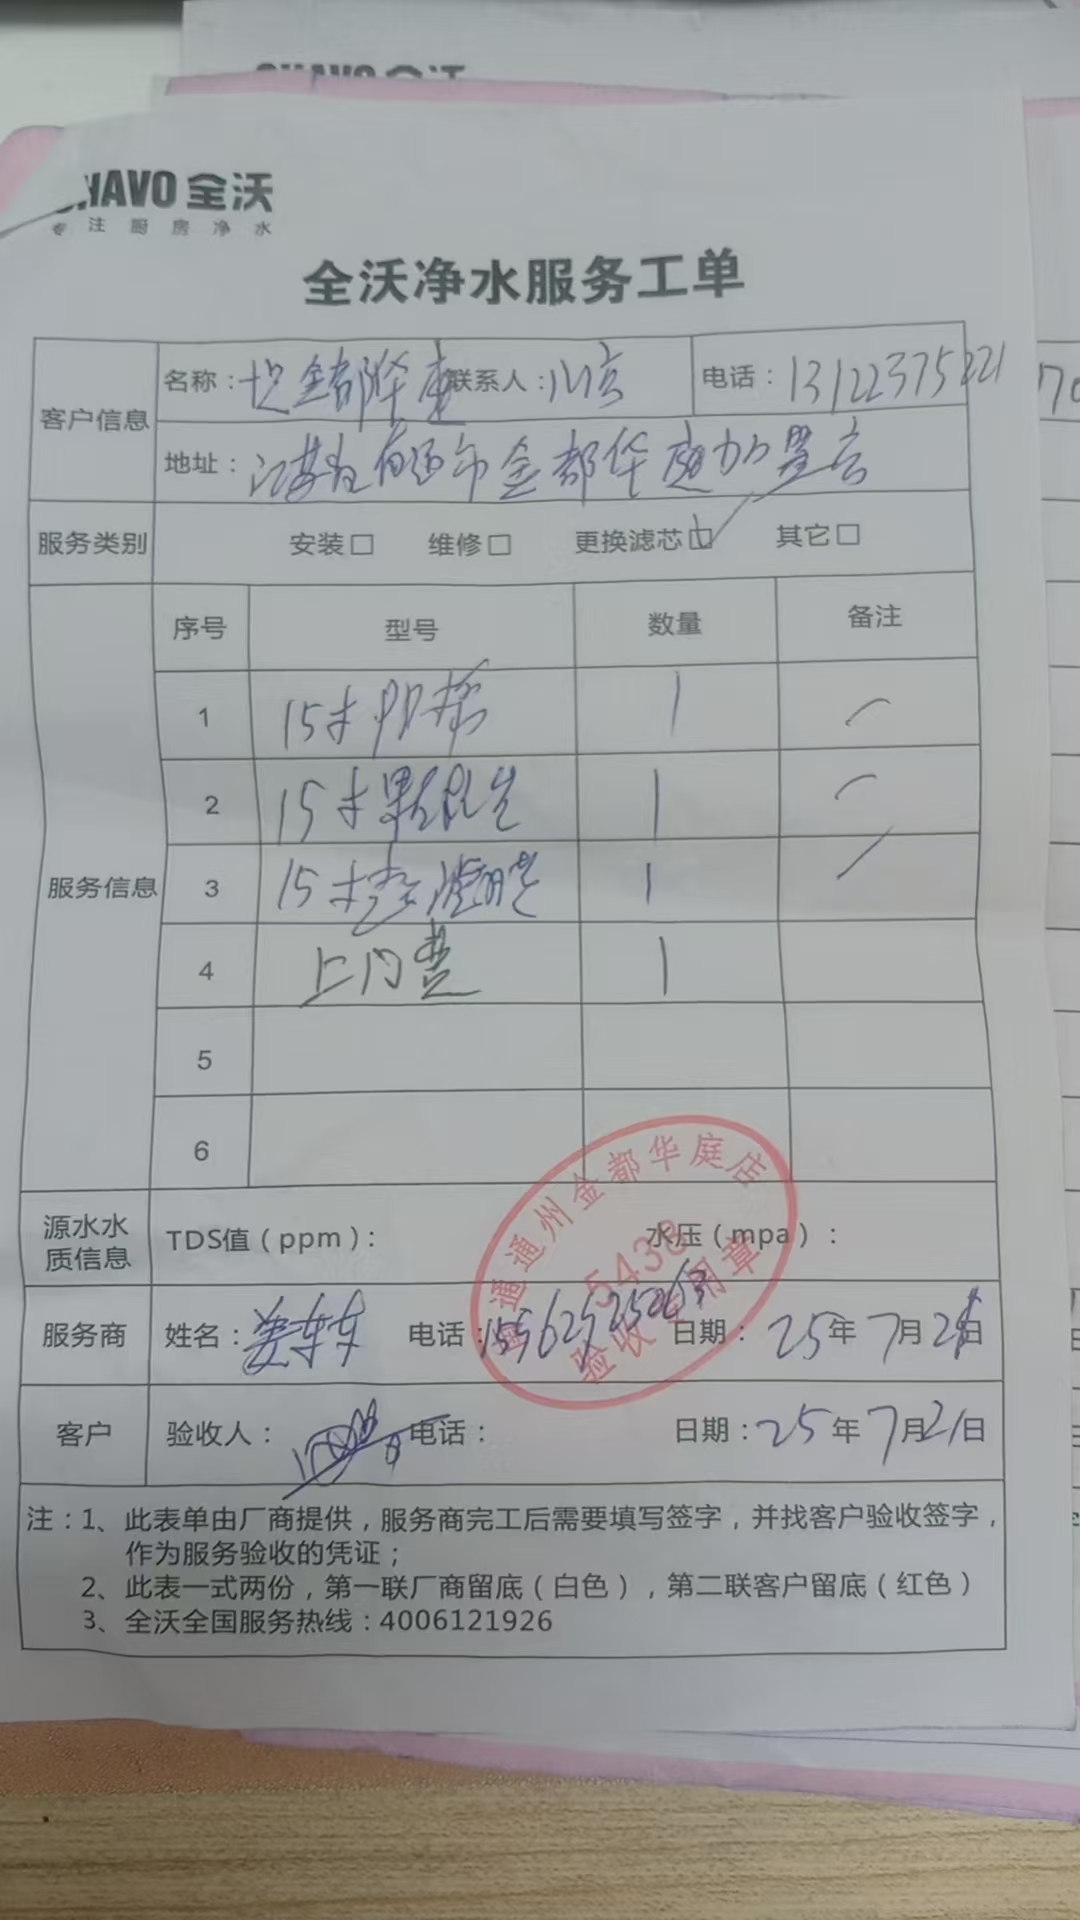 全沃
HAVO 全沃
专注厨房净水
全沃净水服务工单
客户信息 名称： 金都华庭 联系人： 电话：13122375221
地址：江苏省南通市金都华庭
服务类别 安装□ 维修□ 更换滤芯☑ 其它□
服务信息 序号 型号 数量 备注
1 15寸PP棉 1
2 15寸颗粒炭 1
3 15寸 1
4 上门费 1
5
6
源水水质信息 TDS值（ppm）： 水压（mpa）：
通州金都华庭店
5438
验收专用章
服务商 姓名：姜东东 电话： 日期：25年7月21日
客户 验收人： 电话： 日期：25年7月21日
注：1、此表单由厂商提供，服务商完工后需要填写签字，并找客户验收签字，
作为服务验收的凭证；
2、此表一式两份，第一联厂商留底（白色），第二联客户留底（红色）
3、全沃全国服务热线：4006121926